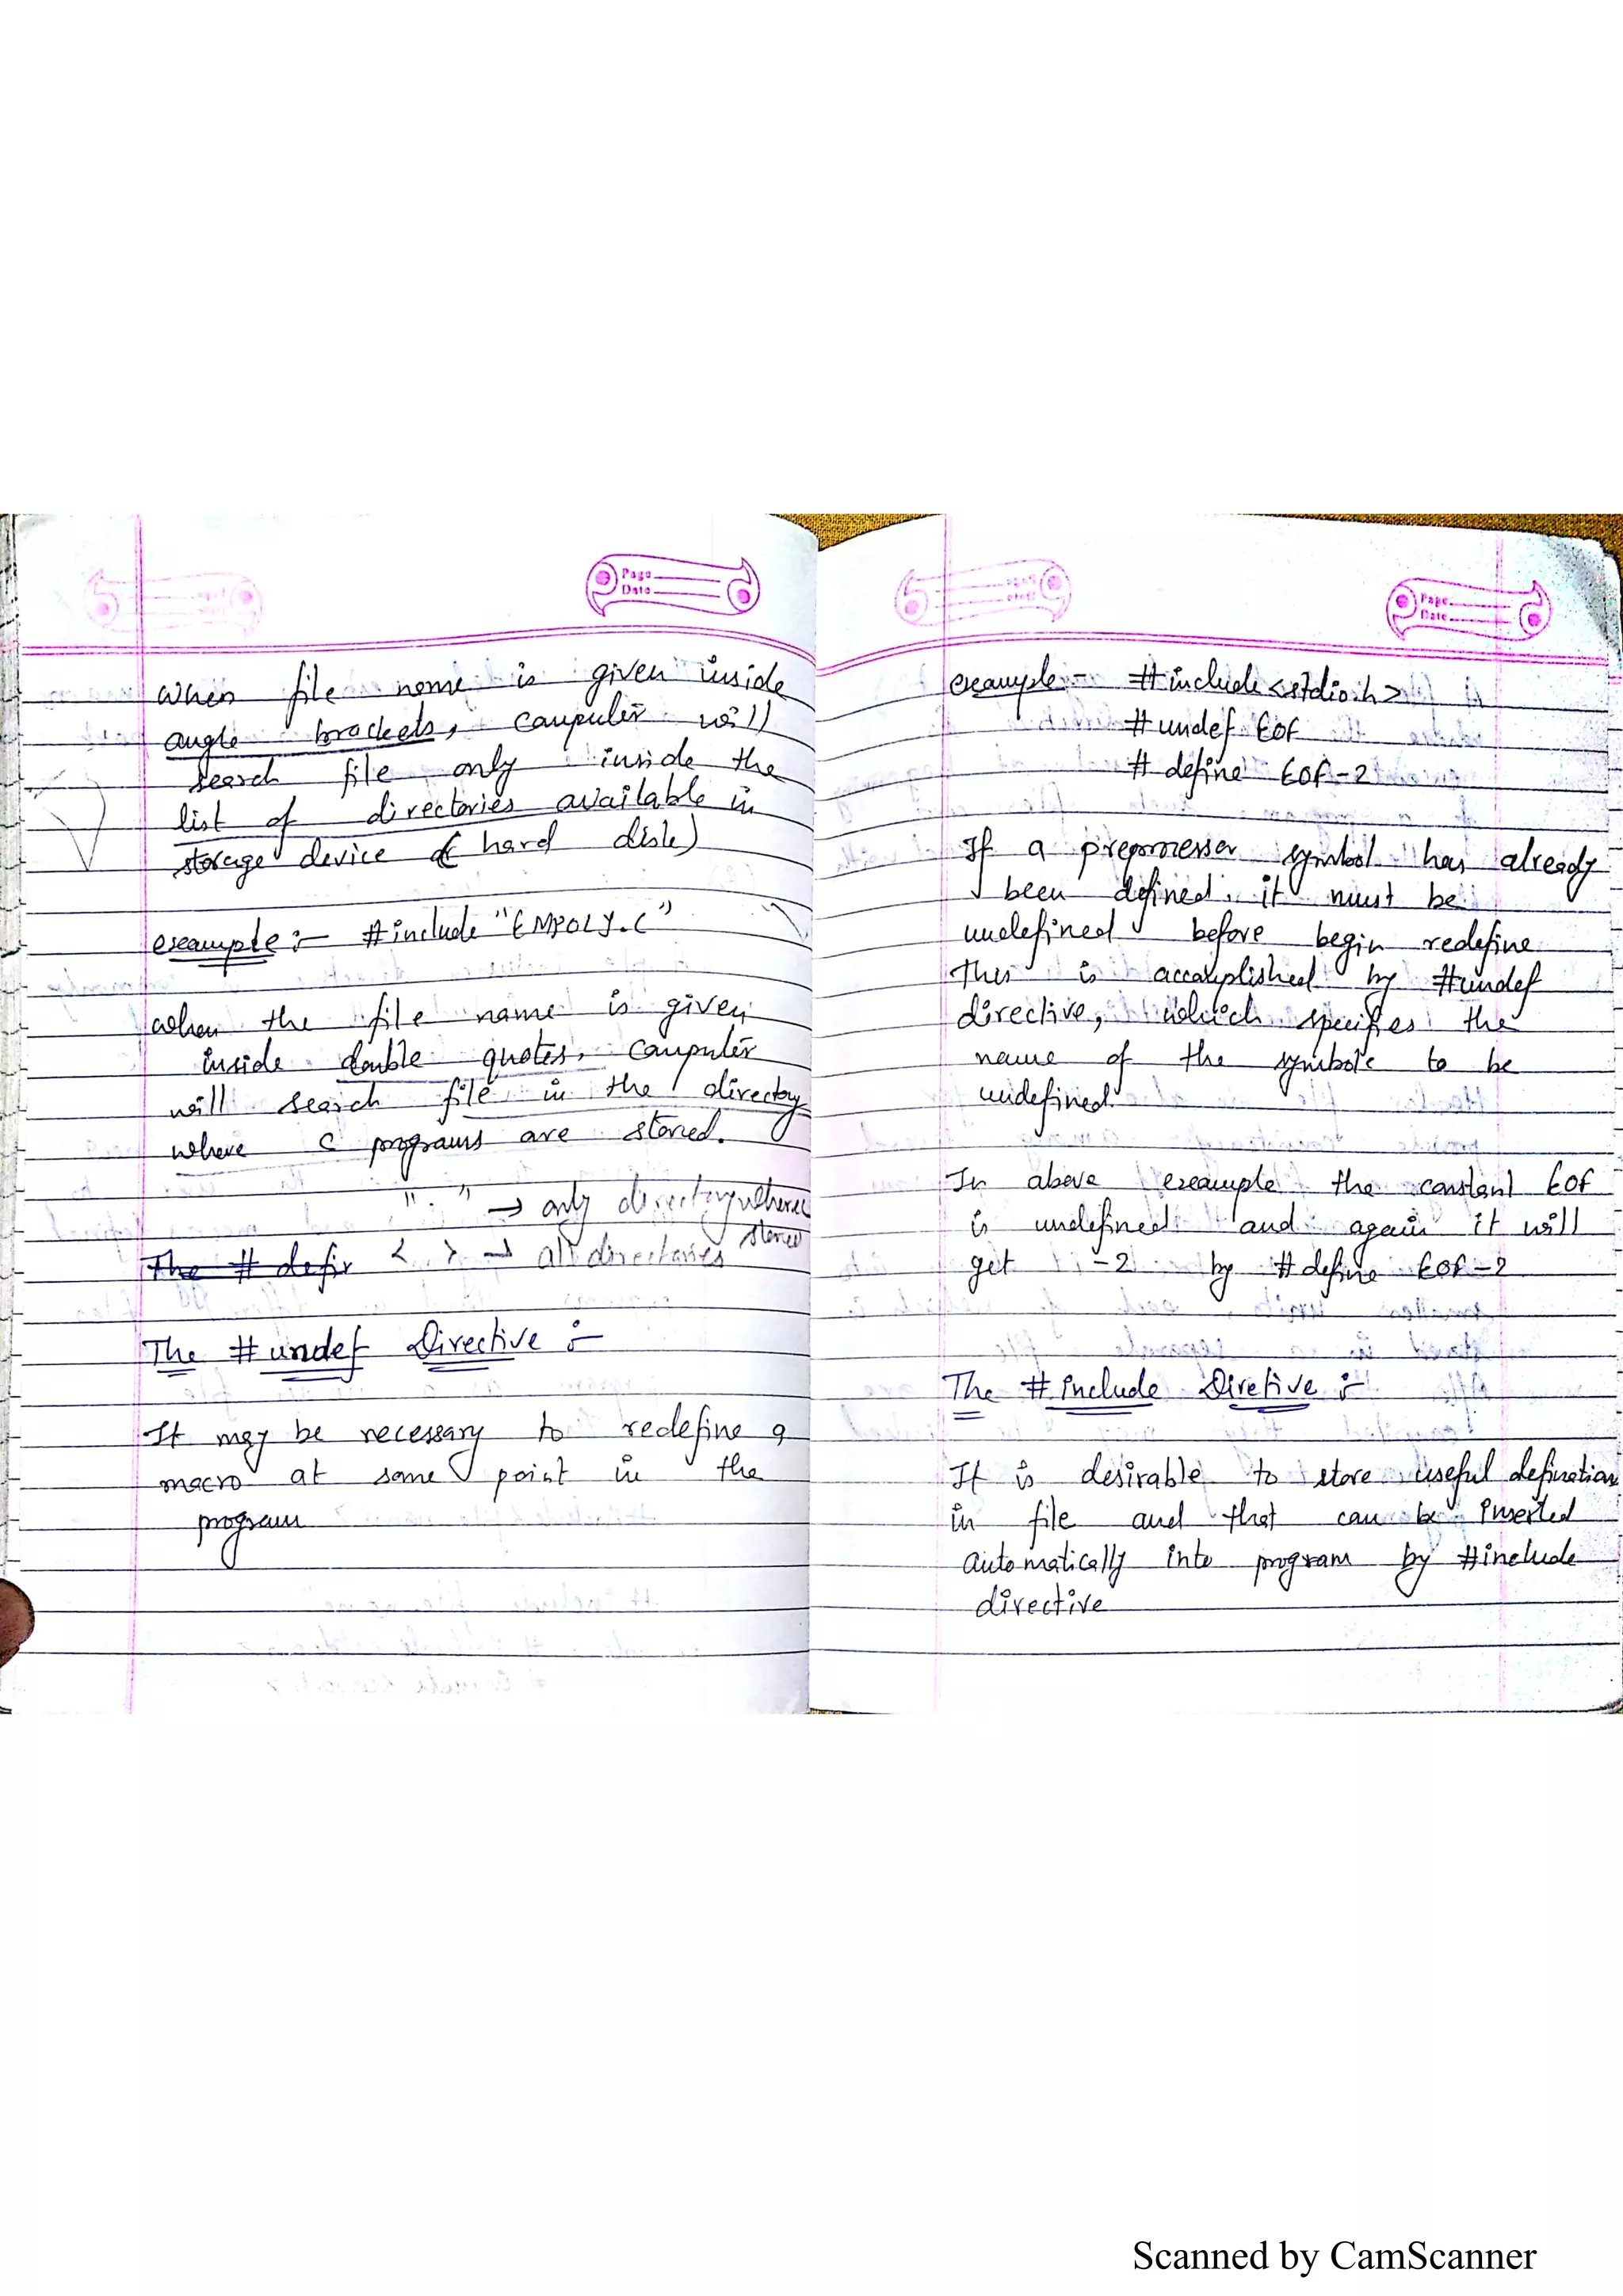 Page
Date
when file name is given inside
angle brackets, computer will
search file only inside the
list of directories available in
storage device ( hard disk)
example :- #include "EMPOLY.C"
when the file name is given
inside double quotes, computer
will search file in the directory
where C programs are stored.
" . " → only directory where
stored
The # defin < > → all directories
The #undef Directive :-
It may be necessary to redefine a
macro at some point in the
program
Page
Date
example :- #include <stdio.h>
#undef EOF
# define EOF -2
If a preprocesser symbol has already
been defined, it must be
undefined before begin redefine
This is accomplished by #undef
directive, which specifies the
name of the symbole to be
undefined.
In above example the constant EOF
is undefined and again it will
get -2 by #define EOF -2
The #include Diretive :-
It is desirable to store useful defination
in file and that can be inserted
automatically into program by #include
directive
Scanned by CamScanner